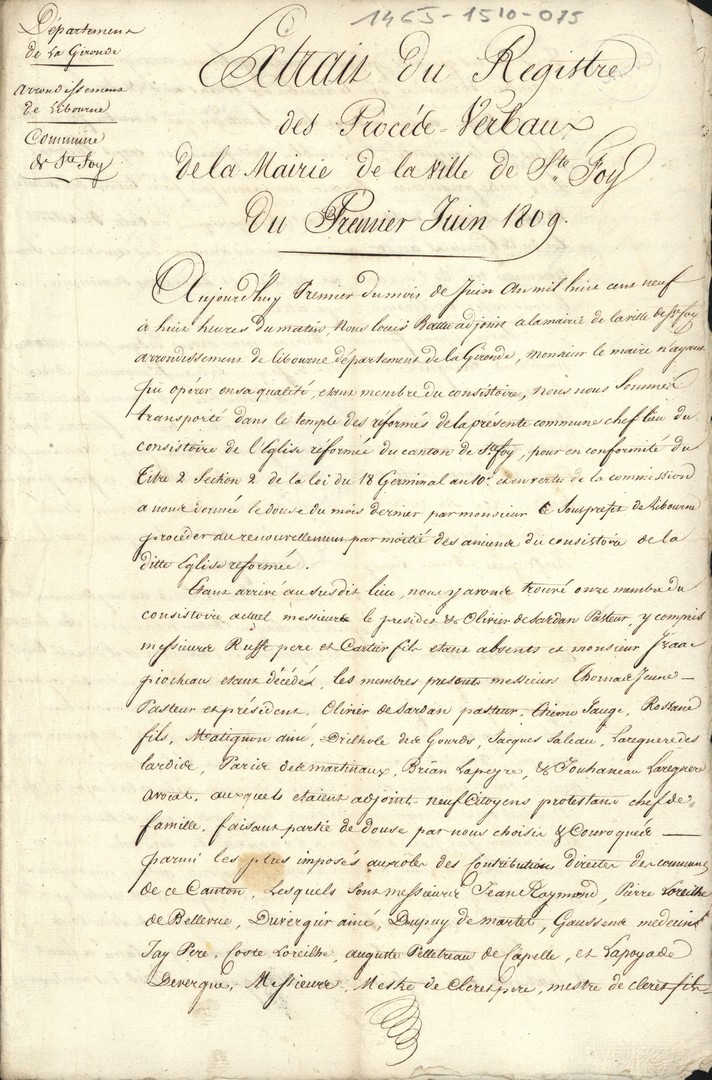 1465-1510-075
Département
de La Gironde
arrondissement
de Libourne
Commune
de Ste Foy
Extrait du Registre
des Procéde-Verbaux
de la Mairie de la ville de Ste Foy
Du Premier Juin 1809.
Aujourd'huy Premier du mois de Juin An mil huit cent neuf
à huit heures du matin, Nous louis Batte adjoint a la mairie de la ville de Ste foy
arrondissement de libourne département de la Gironde, monsieur le maire n'ayant
pu opérer en sa qualité, etant membre du consistoire, Nous nous Sommes
transporté dans le temple des réformés de la présente commune chef lieu du
consistoire de l'Eglise réformée du canton de Ste foy, pour en conformité du
titre 2 Section 2 de la loi du 18 Germinal an 10e et en vertu de la commission
a nous donnée le douse du mois dernier par monsieur le Sous prefet de Libourne
procéder au renouvellement par moitié des anciens du consistoire de la
ditte Eglise reformée.
Etant arrivé au susdit lieu, nous y avons trouvé onze membre du
consistoire actuel messieurs le president & Olivier de Sardan Pasteur, y compris
messieurs Ruffe pere et Cartier fils etant absents et monsieur Izaac
piocheau etant décédés, les membres presents messieurs Thomas Jeune
Pasteur et président, Olivier de Sardan pasteur, Etienne Jauge, Rossane
fils, Matignon ainé, Drilhole des Gourds, Jacques Saleau, Laregnere des
lardide, Paris de martinaux, Brian Lapeyre, & Jouhaneau Laregnere
avocat, auxquels etaient adjoint neuf Citoyens protestans chef de
famille, faisant partie de douse par nous choisis & Convoqués
parmi les plus imposés aux role des Contributions directes des communes
de ce Canton, Lesquels sont messieurs Jean Raymond, Pierre Loreilhe
de Bellevue, Duvergier ainé, Dupuy de martet, Gaussens medecin
Jay Pere, Coste Loreilhe, auguste Pelletreau de Capelle, et Lapoyade
Deverque, Messieurs, Mestre de Cleret pere, mestre de cleret fils